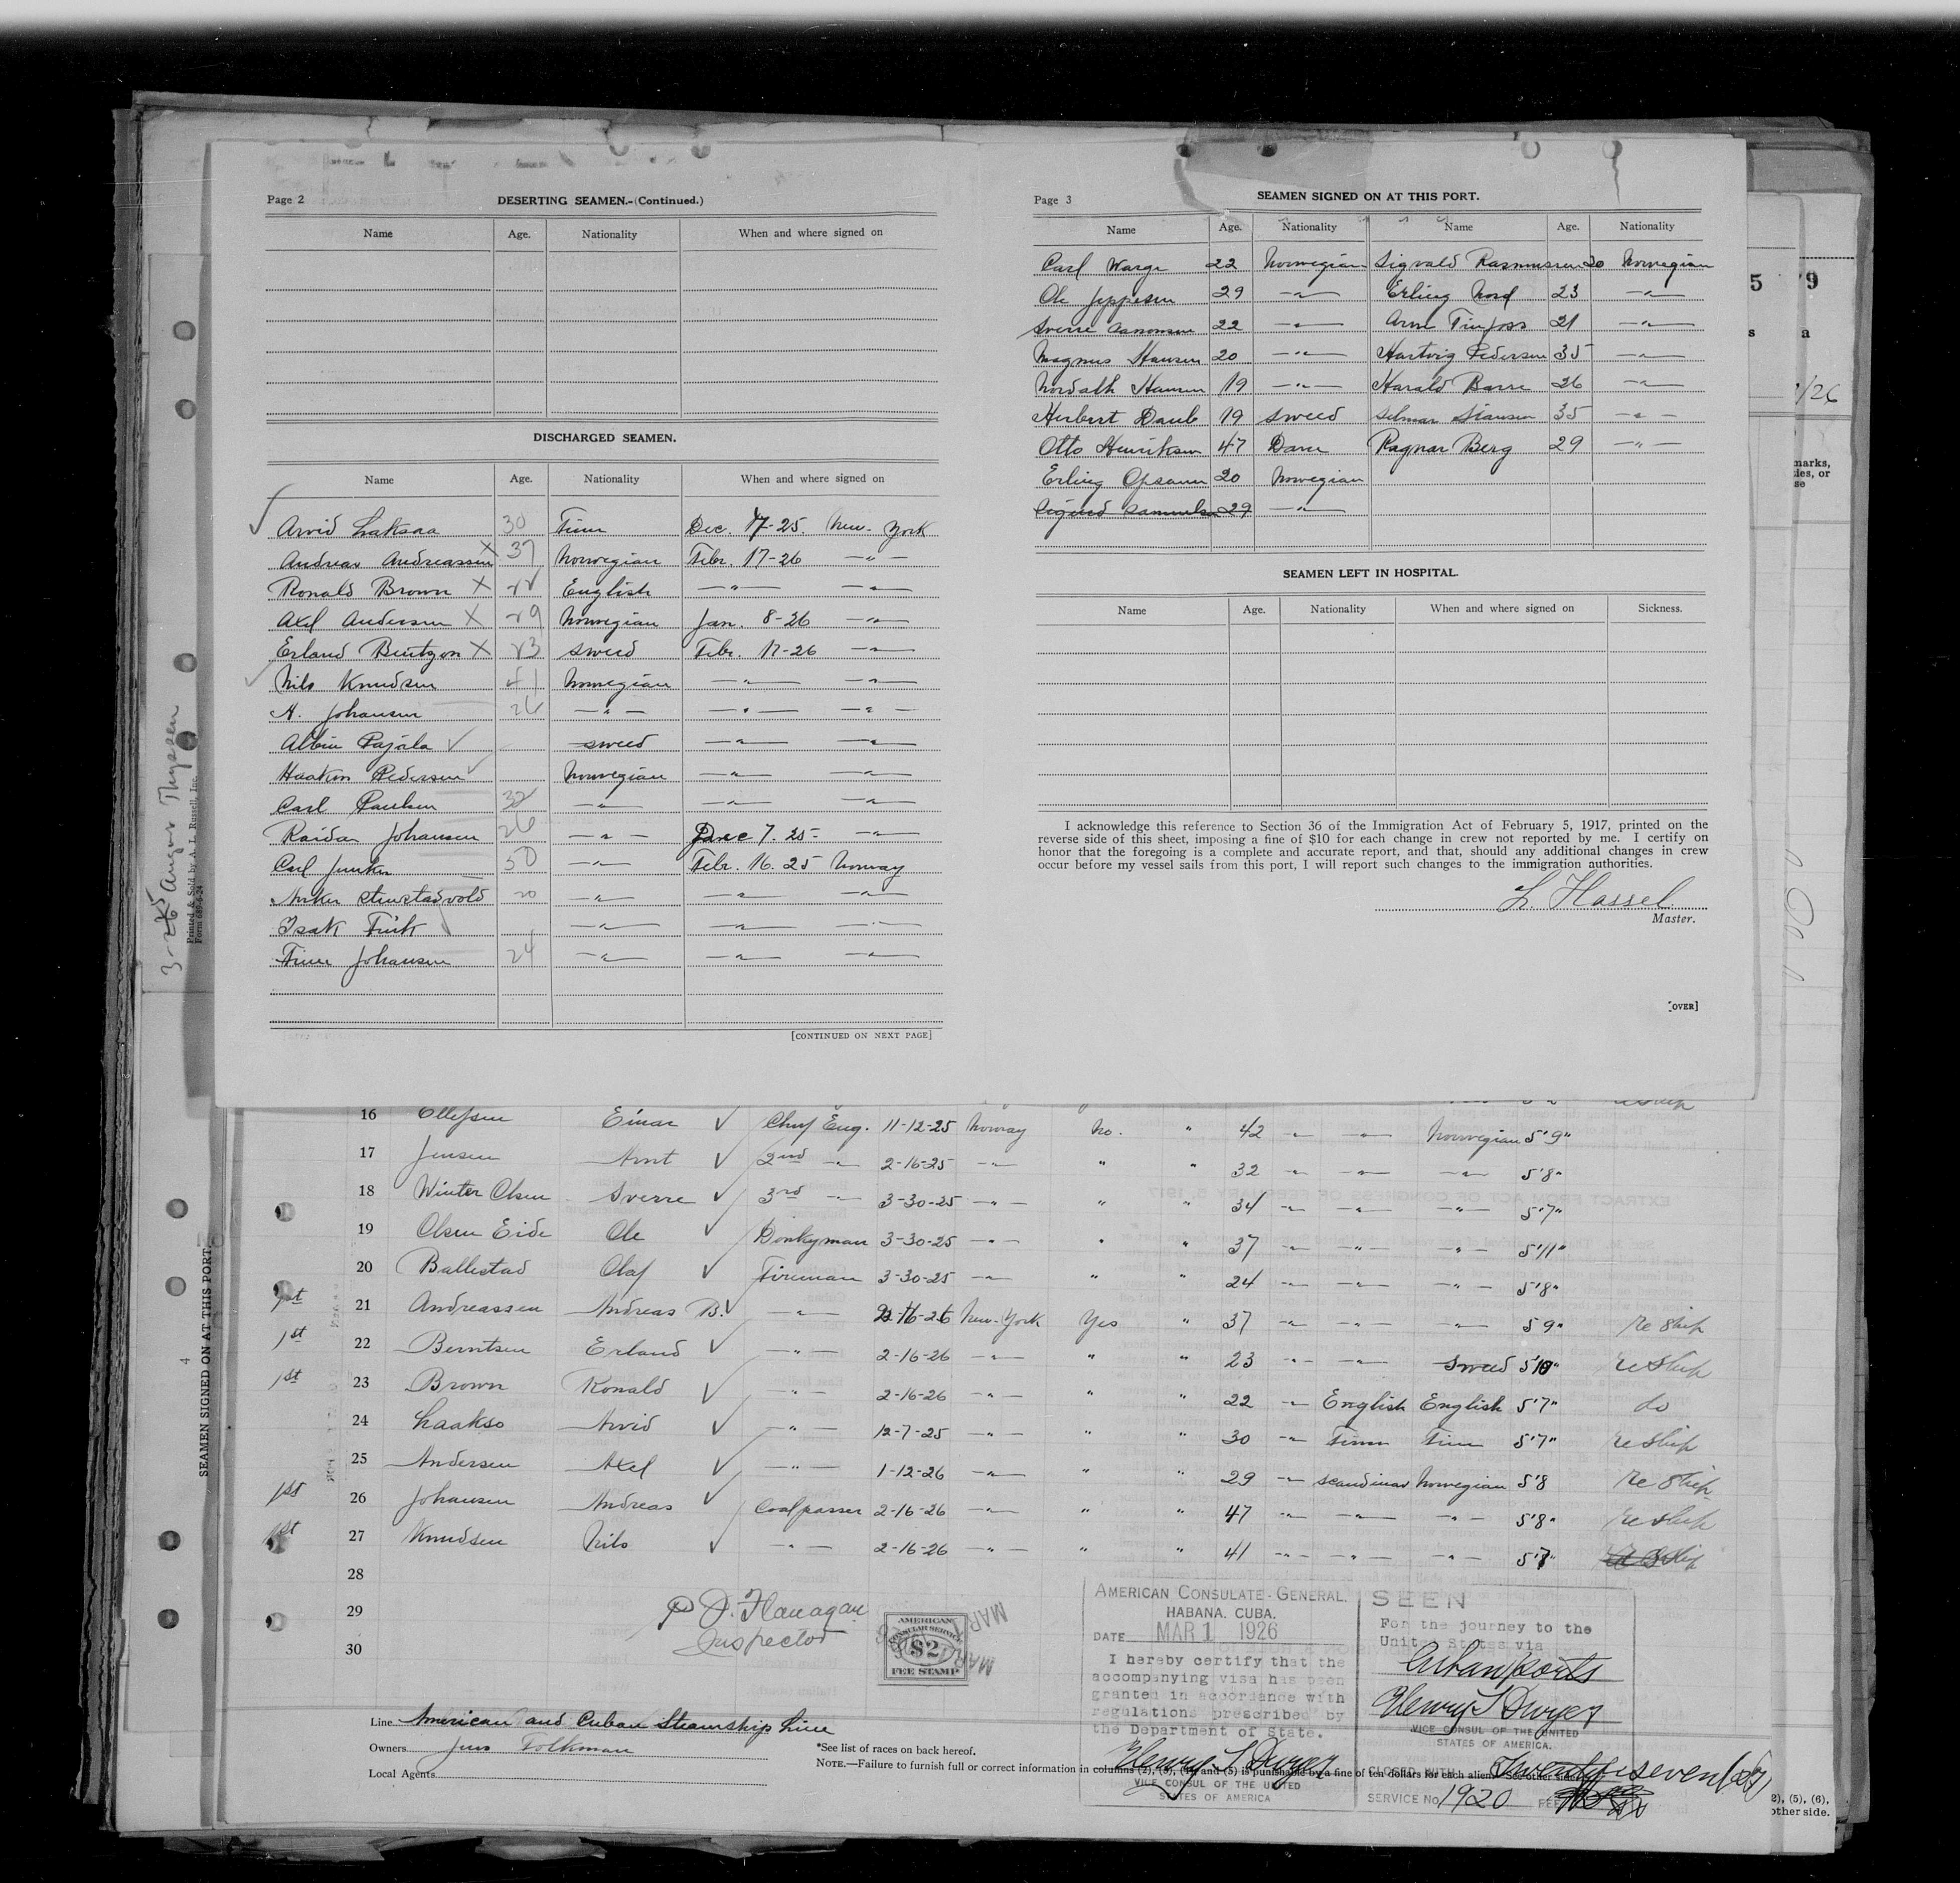 Page 2
DESERTING SEAMEN.-(Continued.)
Name Age. Nationality When and where signed on
DISCHARGED SEAMEN.
Name Age. Nationality When and where signed on
Arvid Laksaa 30 Finn Dec. 7-25. New-York
Andreas Andreassen X 37 Norwegian Febr. 17-26 —"—
Ronald Brown X 22 English —"— —"—
Axel Andersen X 29 Norwegian Jan. 8-26 —"—
Erland Bentzon X 23 Sweed Febr. 17-26 —"—
Nils Knudsen 41 Norwegian —"— —"—
A. Johansen 26 —"— —"— —"—
Albin Pajala ✓ Sweed —"— —"—
Haakon Pedersen ✓ Norwegian —"— —"—
Carl Paulsen 32 —"— —"— —"—
Raidar Johansen 26 —"— Dec 7. 25- —"—
Carl Junker 50 —"— Febr. 16. 25 Norway
Anker Stenstadvold 20 —"— —"— —"—
Isak —"— —"— —"—
Finn Johansen 24 —"— —"— —"—
[CONTINUED ON NEXT PAGE]
Page 3
SEAMEN SIGNED ON AT THIS PORT.
Name Age. Nationality Name Age. Nationality
Carl Warge 22 Norwegian Sigvald Rasmussen 20 Norwegian
Ole Jeppesen 29 —"— Erling Nord 23 —"—
Sverre Aanonsen 22 —"— Arne Tinfoss 21 —"—
Magnus Hansen 20 —"— Hartvig Pedersen 35 —"—
Nordahl Hansen 19 —"— Harald Barre 26 —"—
Herbert Daub 19 Sweed Selmar 35 —"—
Otto Henriksen 47 Dane Ragnar Berg 29 —"—
Erling Opsann 20 Norwegian
Sigurd Samuelsen 29 —"—
SEAMEN LEFT IN HOSPITAL.
Name Age. Nationality When and where signed on Sickness.
I acknowledge this reference to Section 36 of the Immigration Act of February 5, 1917, printed on the
reverse side of this sheet, imposing a fine of $10 for each change in crew not reported by me. I certify on
honor that the foregoing is a complete and accurate report, and that, should any additional changes in crew
occur before my vessel sails from this port, I will report such changes to the immigration authorities.
L. Hassel
Master.
[OVER]
16 Ellefsen Einar ✓ Chief Eng. 11-12-25 Norway No. " 42 —"— —"— Norwegian 5'9"
17 Jensen Arnt ✓ 2nd —"— 2-16-25 —"— " " 32 —"— —"— —"— 5'8"
18 Winter Olsen Sverre ✓ 3rd —"— 3-30-25 —"— " " 34 —"— —"— —"— 5'7"
19 Olsen Eide Ole ✓ Donkyman 3-30-25 —"— " " 37 —"— —"— —"— 5'11"
20 Ballestad Olaf ✓ Fireman 3-30-25 —"— " " 24 —"— —"— —"— 5'8"
1st 21 Andreassen Andreas B. ✓ —"— 2-16-26 New-York Yes " 37 —"— —"— —"— 5 9" Re Ship
1st 22 Berntsen Erland ✓ —"— 2-16-26 —"— " " 23 —"— —"— Sweed 5'10" Re Ship
1st 23 Brown Ronald ✓ —"— 2-16-26 —"— " " 22 —"— English English 5'7" do
24 Laakso Arvid ✓ —"— 12-7-25 —"— " " 30 —"— Finn Finn 5'7" Re Ship
25 Andersen Axel ✓ —"— 1-12-26 —"— " " 29 —"— Scandinav Norwegian 5'8 Re Ship
1st 26 Johansen Andreas ✓ Coalpasser 2-16-26 —"— " " 47 —"— —"— —"— 5'8" Re Ship
1st 27 Knudsen Nils ✓ —"— 2-16-26 —"— " " 41 —"— —"— —"— 5'7" Re Ship
28
29
30
P J. Flanagan
Inspector
AMERICAN
CONSULAR SERVICE
$2
FEE STAMP
AMERICAN CONSULATE-GENERAL.
HABANA, CUBA.
DATE MAR 1 1926
I hereby certify that the
accompanying visa has been
granted in accordance with
regulations prescribed by
the Department of State.
Henry T Dwyer
VICE CONSUL OF THE UNITED
STATES OF AMERICA
SEEN
For the journey to the
United States via
Cuban ports
Henry T Dwyer
VICE CONSUL OF THE UNITED
STATES OF AMERICA.
CLOSED WITH Twenty seven (27)
SERVICE No. 1920 FEE
Line American and Cuban Steamship Line
Owners Jens Folkman
Local Agents
*See list of races on back hereof.
NOTE.—Failure to furnish full or correct information in columns (2), (5), (6), and (8) is punishable by a fine of ten dollars for each alien. See other side.
SEAMEN SIGNED ON AT THIS PORT.
4
3-25 August Thyssen
Printed & Sold by A. L. Russell, Inc.
Form 689-6-24
5 79
s a
/26
marks,
ties, or
se
2), (5), (6),
other side.
EXTRACT FROM ACT OF CONGRESS OF FEBRUARY 5, 1917